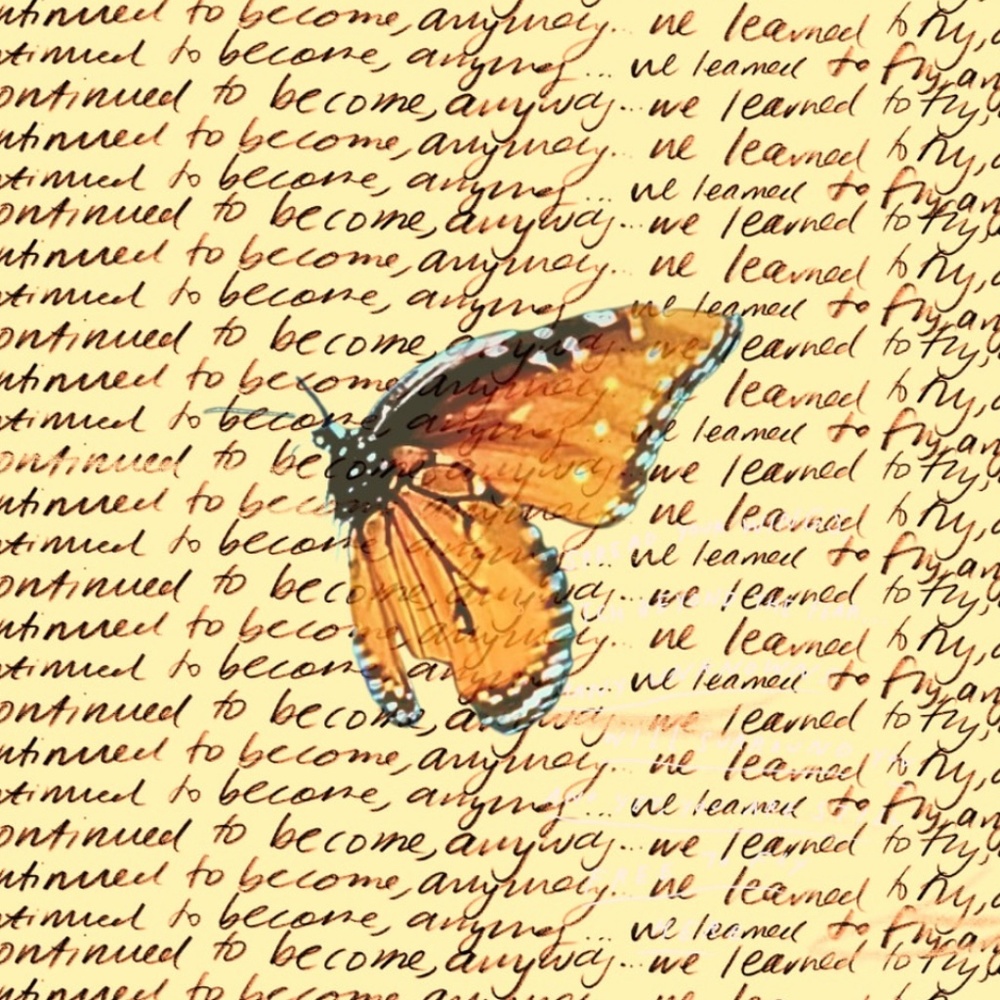 ntinued to become, anyway... we learned to fly, a
tinued to become, anyway... we learned to fly, an
ontinued to become, anyway... we learned to fly,
ntinued to become, anyway... we learned to fly, a
tinued to become, anyway... we learned to fly, an
ontinued to become, anyway... we learned to fly,
ntinued to become, anyway... we learned to fly, a
tinued to become, anyway... we learned to fly, an
ontinued to become, anyway... we learned to fly,
ntinued to become, anyway... learned to fly, a
tinued to become, anyway... we learned to fly, an
ontinued to become, anyway... we learned to fly,
ntinued to become, anyway... we learned to fly, a
tinued to become, anyway... we learned to fly, an
ontinued to become, anyway... we learned to fly,
ntinued to become, anyway... we learned to fly, a
tinued to become, anyway... we learned to fly, an
ontinued to become, anyway... we learned to fly,
ntinued to become, anyway... we learned to fly, a
tinued to become, anyway... we learned to fly, an
ontinued to become, anyway... we learned to fly,
ntinued to become, anyway... we learned to fly, a
tinued to become, anyway... we learned to fly, an
ontinued to become, anyway... we learned to fly,
ntinued to become, anyway... we learned to fly, a